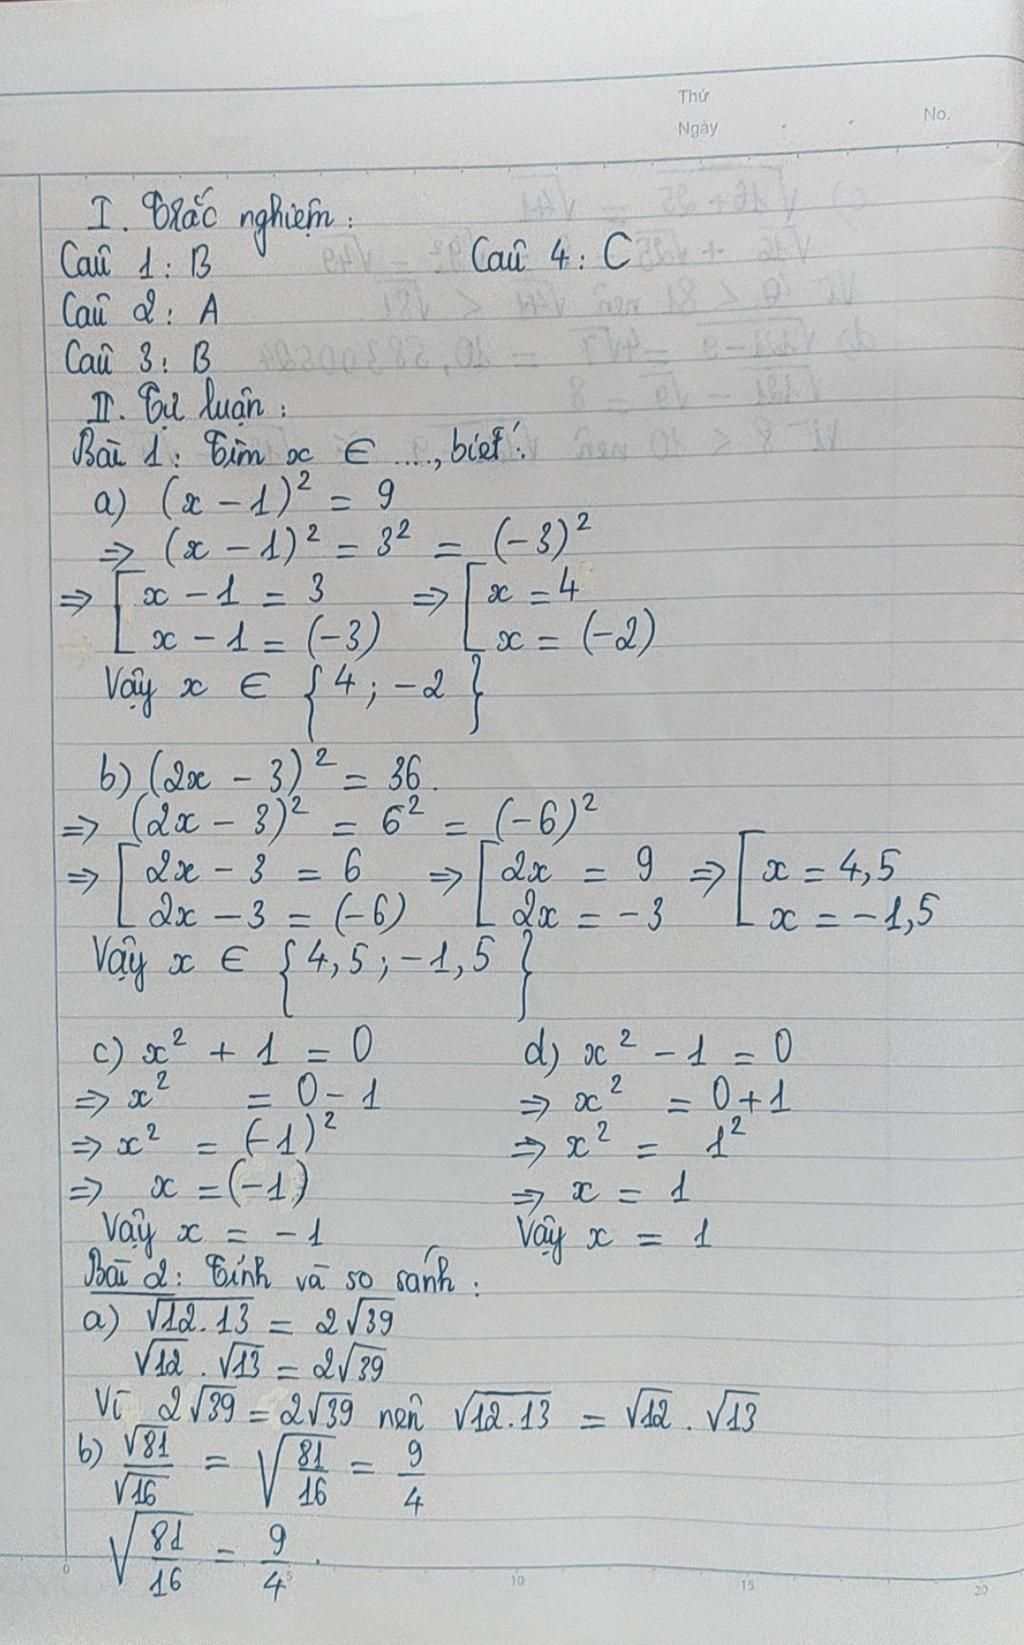 Thứ
Ngày
No.
I. Trắc nghiệm:
Câu 1: B Câu 4: C
Câu 2: A
Câu 3: B
II. Tự luận:
Bài 1: Tìm x ∈ ...., biết:
a) (x - 1)² = 9
⇒ (x - 1)² = 3² = (-3)²
⇒ [x - 1 = 3 ⇒ [x = 4
x - 1 = (-3) x = (-2)
Vậy x ∈ {4; -2}
b) (2x - 3)² = 36.
⇒ (2x - 3)² = 6² = (-6)²
⇒ [2x - 3 = 6 ⇒ [2x = 9 ⇒ [x = 4,5
2x - 3 = (-6) 2x = -3 x = -1,5
Vậy x ∈ {4,5; -1,5}
c) x² + 1 = 0 d) x² - 1 = 0
⇒ x² = 0 - 1 ⇒ x² = 0 + 1
⇒ x² = (-1)² ⇒ x² = 1²
⇒ x = (-1) ⇒ x = 1
Vậy x = -1 Vậy x = 1
Bài 2: Tính và so sánh:
a) √12.13 = 2√39
√12 . √13 = 2√39
Vì 2√39 = 2√39 nên √12.13 = √12 . √13
b) √81/√16 = √(81/16) = 9/4
√(81/16) = 9/4.
0 5 10 15 20